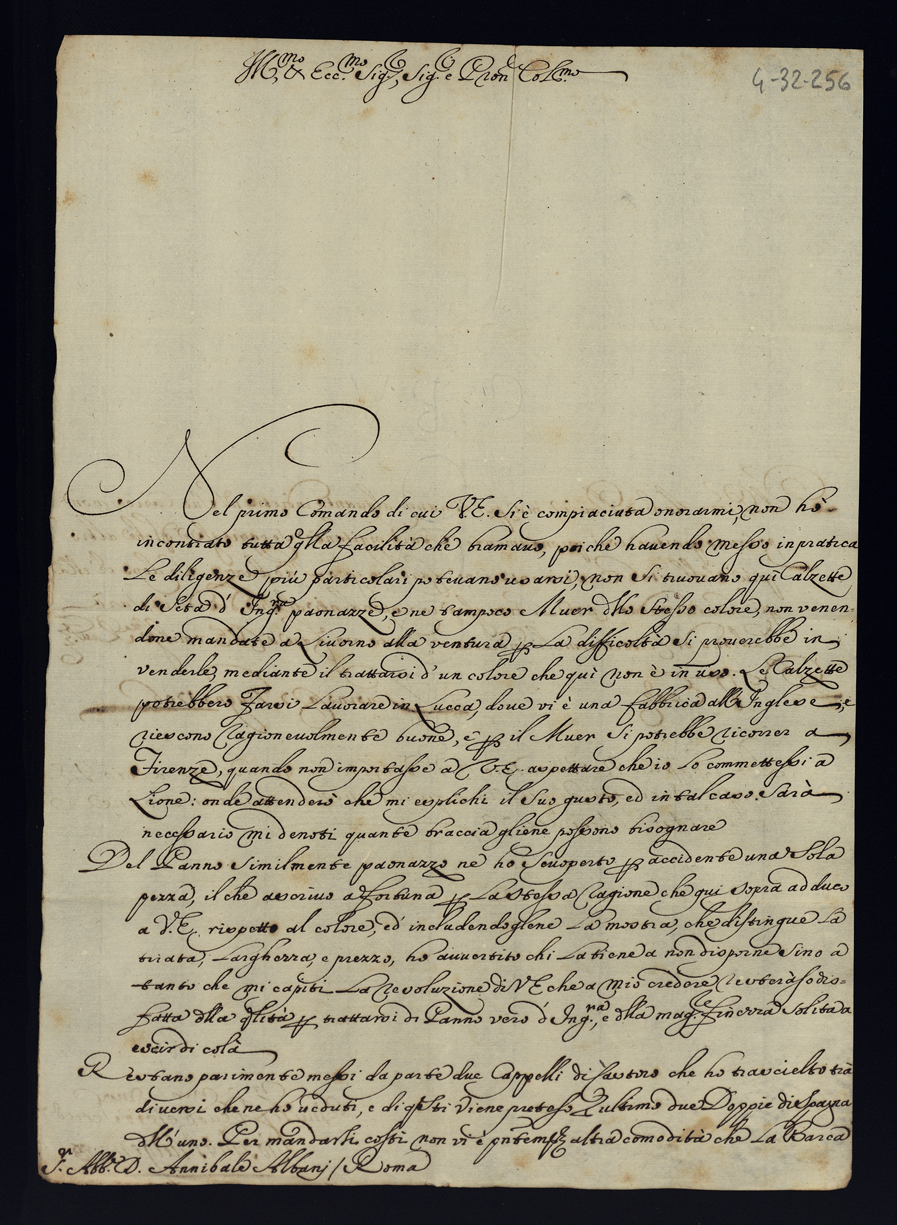 Ill.mo & Ecc.mo Sig.r, Sig.r e Pron Col.mo
4-32-256
Nel primo Comando di cui V.E. si è compiaciuta onorarmi, non hò
incontrato tutta q̃lla facilità che bramavo, poiche havendo messo in pratica
Le diligenze più particolari potevano usarsi, non si truovano qui Calzette
di Seta d' Ing.ra paonazze, e ne tampoco Muer dello stesso colore, non venen-
done mandate a Livorno alla ventura p̱ La difficoltà si proverebbe in
venderle, mediante il trattarsi d'un colore che quì non è in uso. Le Calzette
potrebbero farsi Lavorare in Lucca, dove vi è una fabbrica all'Inglese, e
riescono ragionevolmente buone, e p̱ il Muer si potrebbe ricorrer a
Firenze, quando non importasse a V.E. aspettare che io Lo commettessi a
Lione: onde attenderò che mi esplichi il Suo gusto, ed in tal caso Sarà
necessario mi denoti quante braccia gliene possono bisognare
Del Panno Similmente paonazzo ne ho scuoperto p̱ accidente una Sola
pezza, il che ascrivo a fortuna p̱ La stessa ragione che qui sopra adduco
a V.E. rispetto al colore, ed includendoglene La mostra, che distingue La
tirata, Larghezza, e prezzo, ho avvertito chi La tiene a non disporne sino a
tanto che mi capiti La resoluzione di V.E. che a mio credere resterà sodis-
fatta dlla q̃lità p̱ trattarsi di Panno vero d'Ing.ra, e dlla mag.re finezza solita a
escir di colà
Restano parimente messi da parte due Cappelli di Castoro che ho trascielto trà
diversi che ne ho veduti, e di q̃sti viene preteso p̱ ultimo due Doppie di Spagna
dll'uno. Per mandarli costì non vi è pñtemẽte altra comodità che La Barca
S.r Abb.e D. Annibale Albanj / Roma